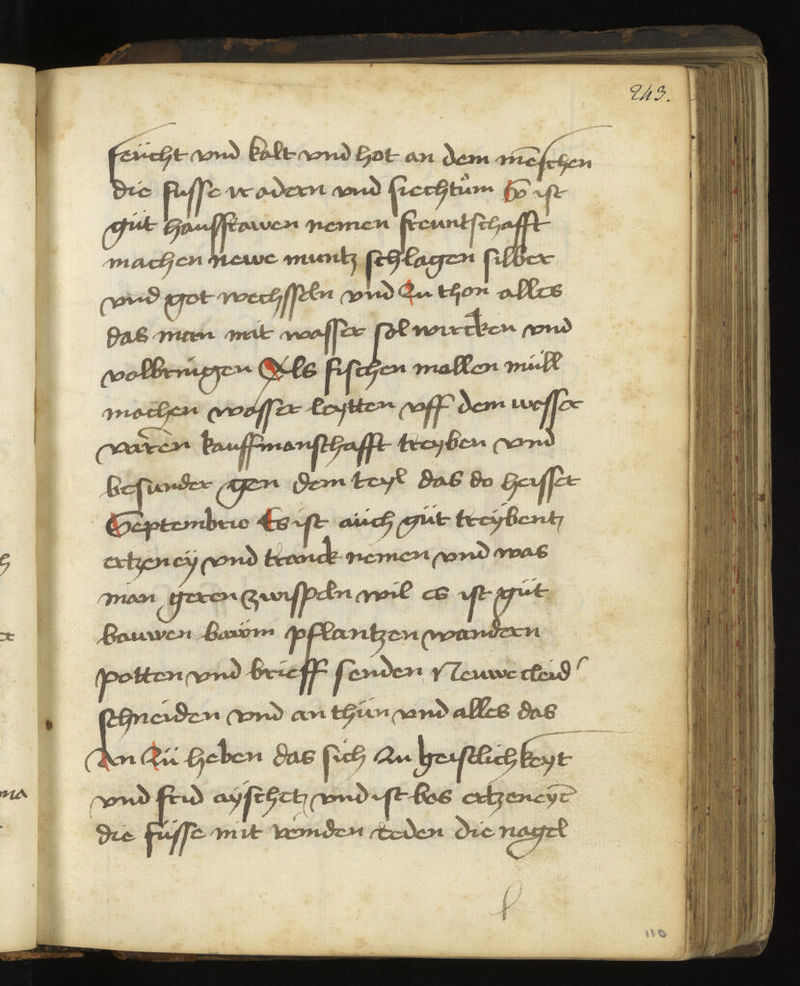 243.
feücht vnd kalt vnd hot an dem mēschen
die fusse ir adern vnd siechtům Es ist
güt haussfrawen nemen freuntschafft
machen newe muntz schlagen silber
vnd got wechsseln vnd Zu thon alles
das man mit wasser sol wircken vnd
volbringen Als fischen mallen müll
machen wasser leytten vff dem wasser
varen kauffmanschafft treyben vnd
besunder gen dem teyl das do heisset
Septembrio Es ist aüch güt treybentz
ertzeney vnd tranck nemen vnd was
man geren zwispeln wil es ist güt
bauwen bawm pflantzen wandern
potten vnd brieff senden Neuwe cleid
schneiden vnd an thün vnd alles das
An Zü heben das sich Zu geistlichkeyt
vnd frid ayschetz vnd ist bos ertzeneyē
die füsse mit die nagel
110